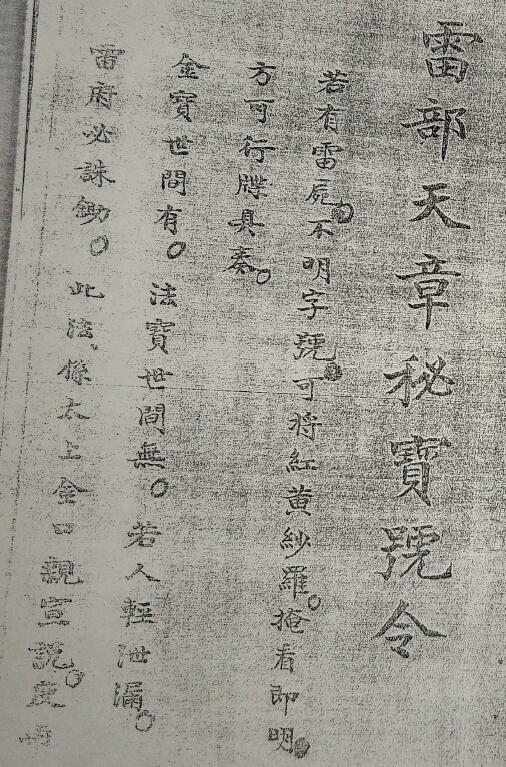 雷部天章秘寶號令
若有雷屍。不明字號。可將紅黃紗羅。掩看即明。
方可行牒具奏。
金寶世間有。法寶世間無。若人輕泄漏。
雷府必誅鋤。此法係太上金口親宣說。度